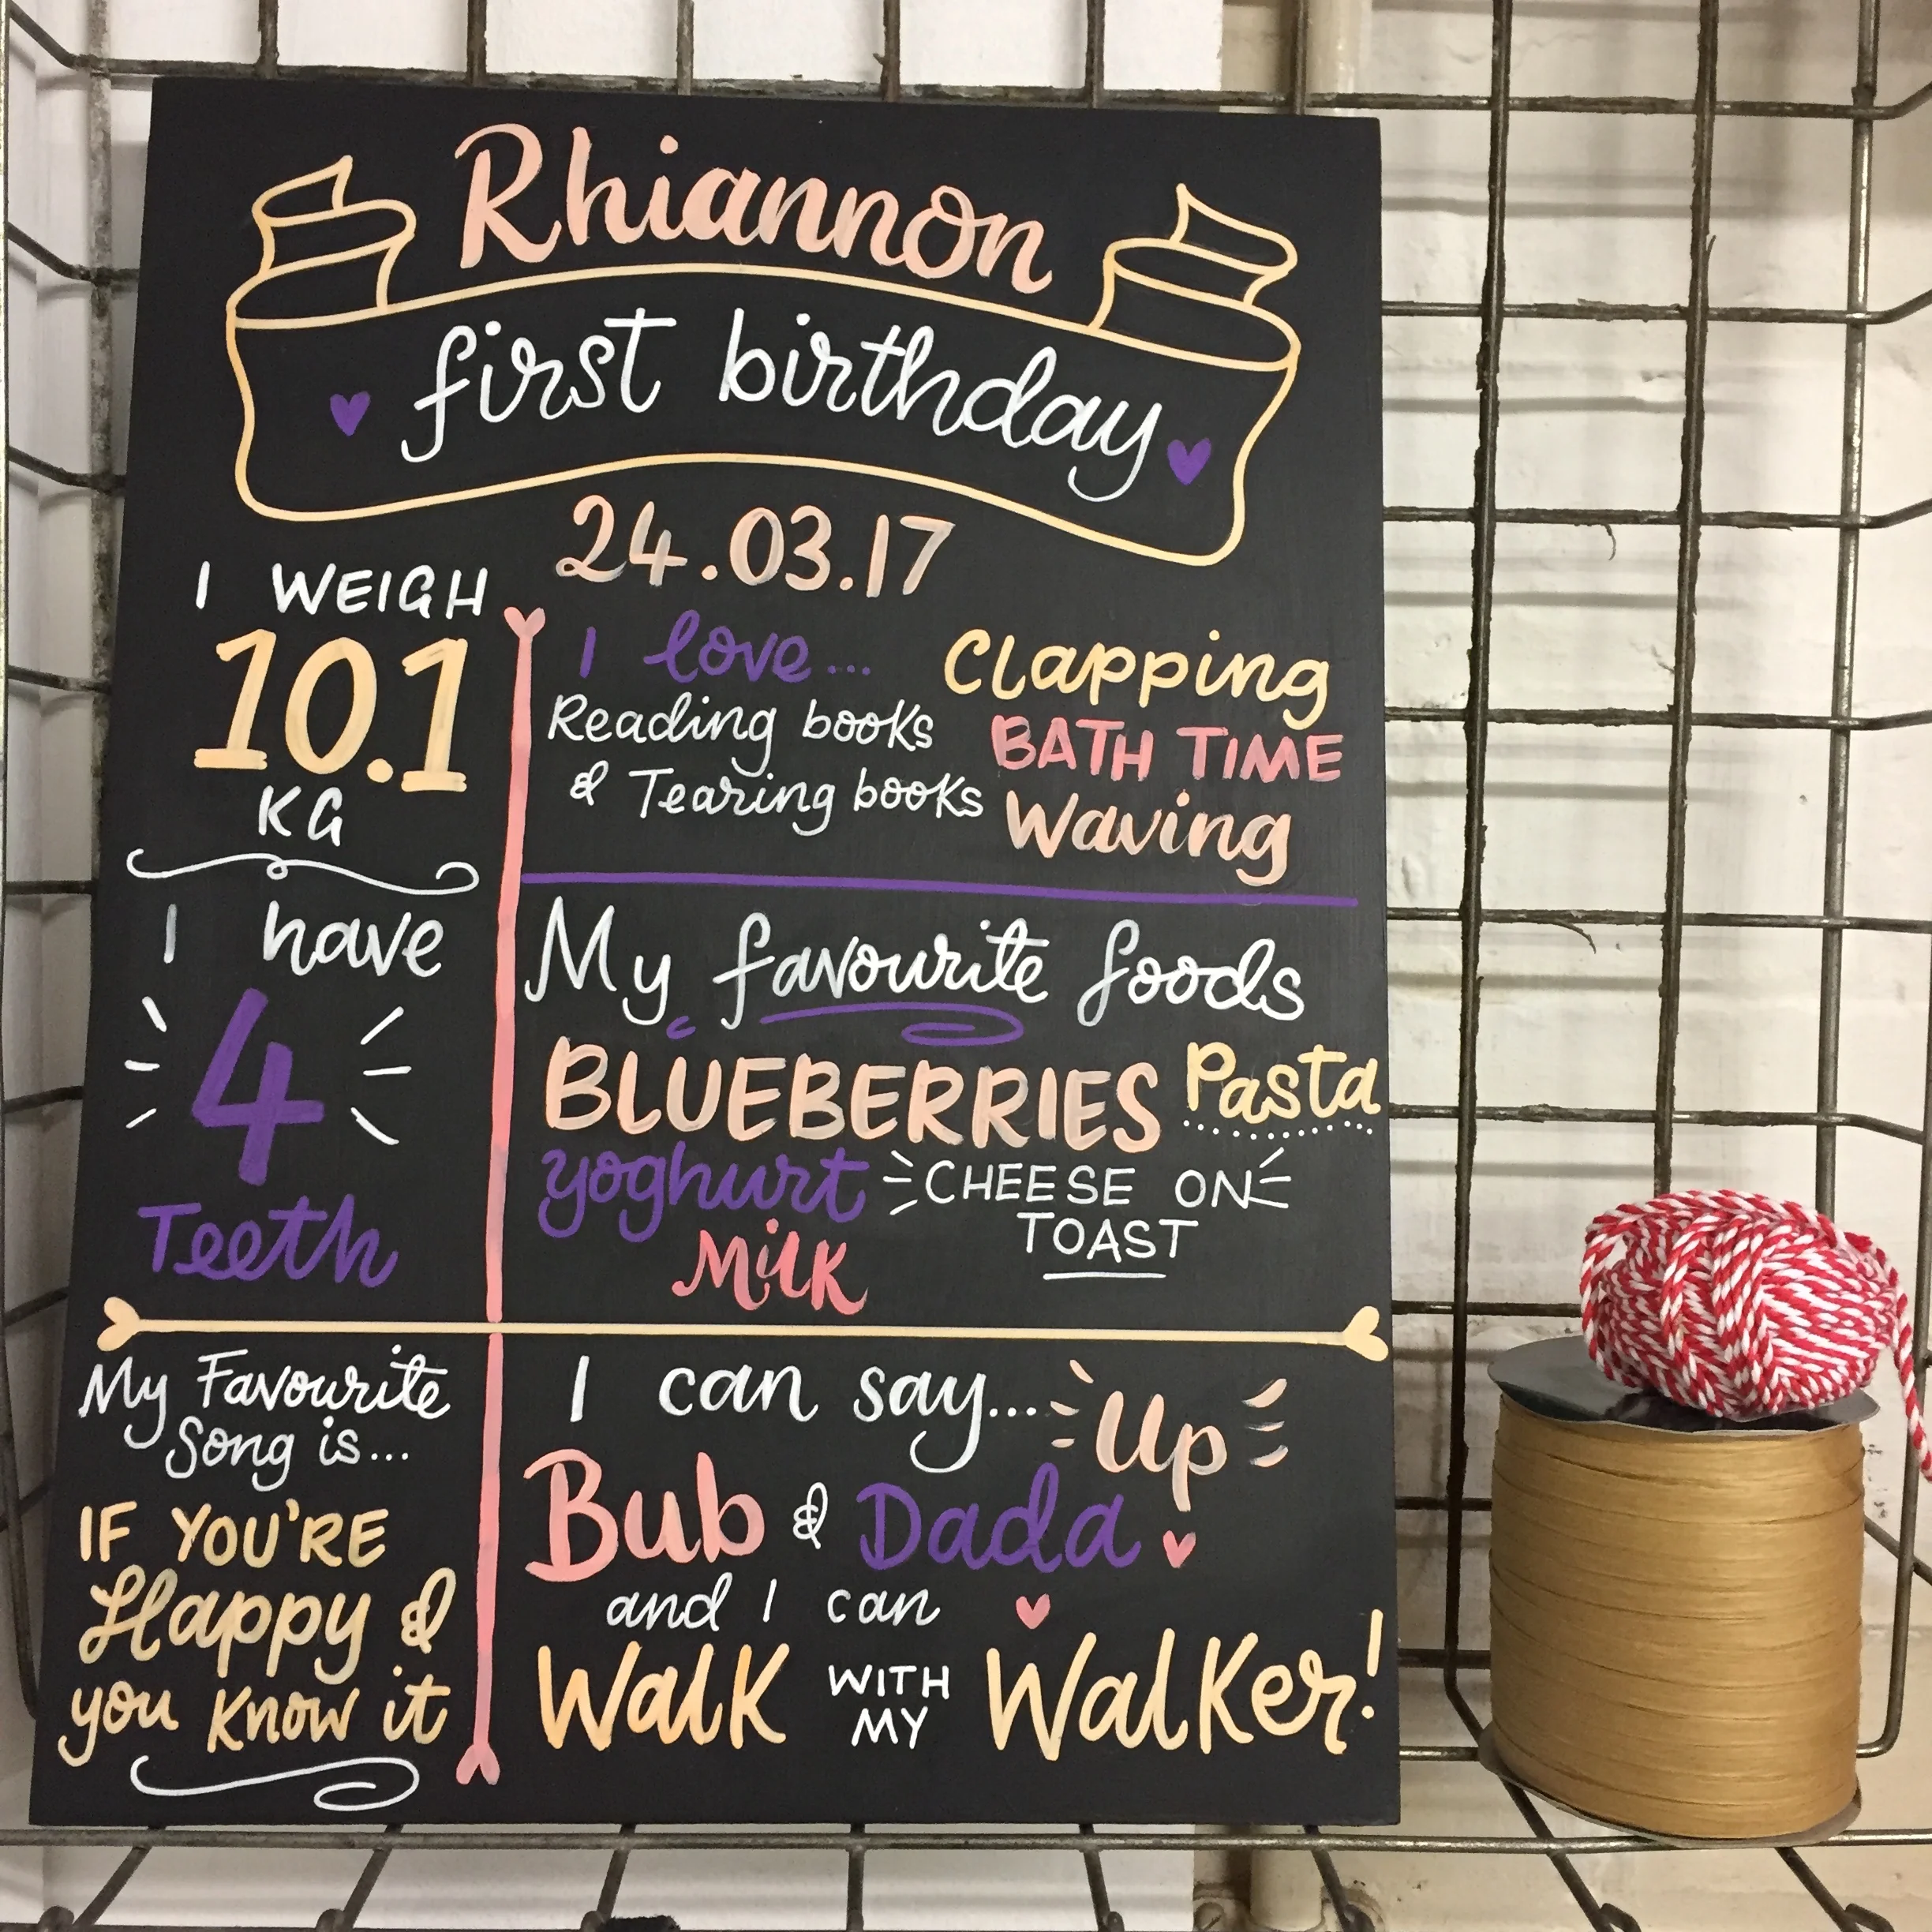 Rhiannon
first birthday
24.03.17
I WEIGH
10.1
KG
I have
4
Teeth
I love...
Reading books
& Tearing books
Clapping
BATH TIME
Waving
My favourite foods
BLUEBERRIES Pasta
yoghurt CHEESE ON
TOAST
Milk
My Favourite
Song is...
IF YOU'RE
Happy &
you know it
I can say... Up
Bub & Dada
and I can
Walk WITH MY Walker!